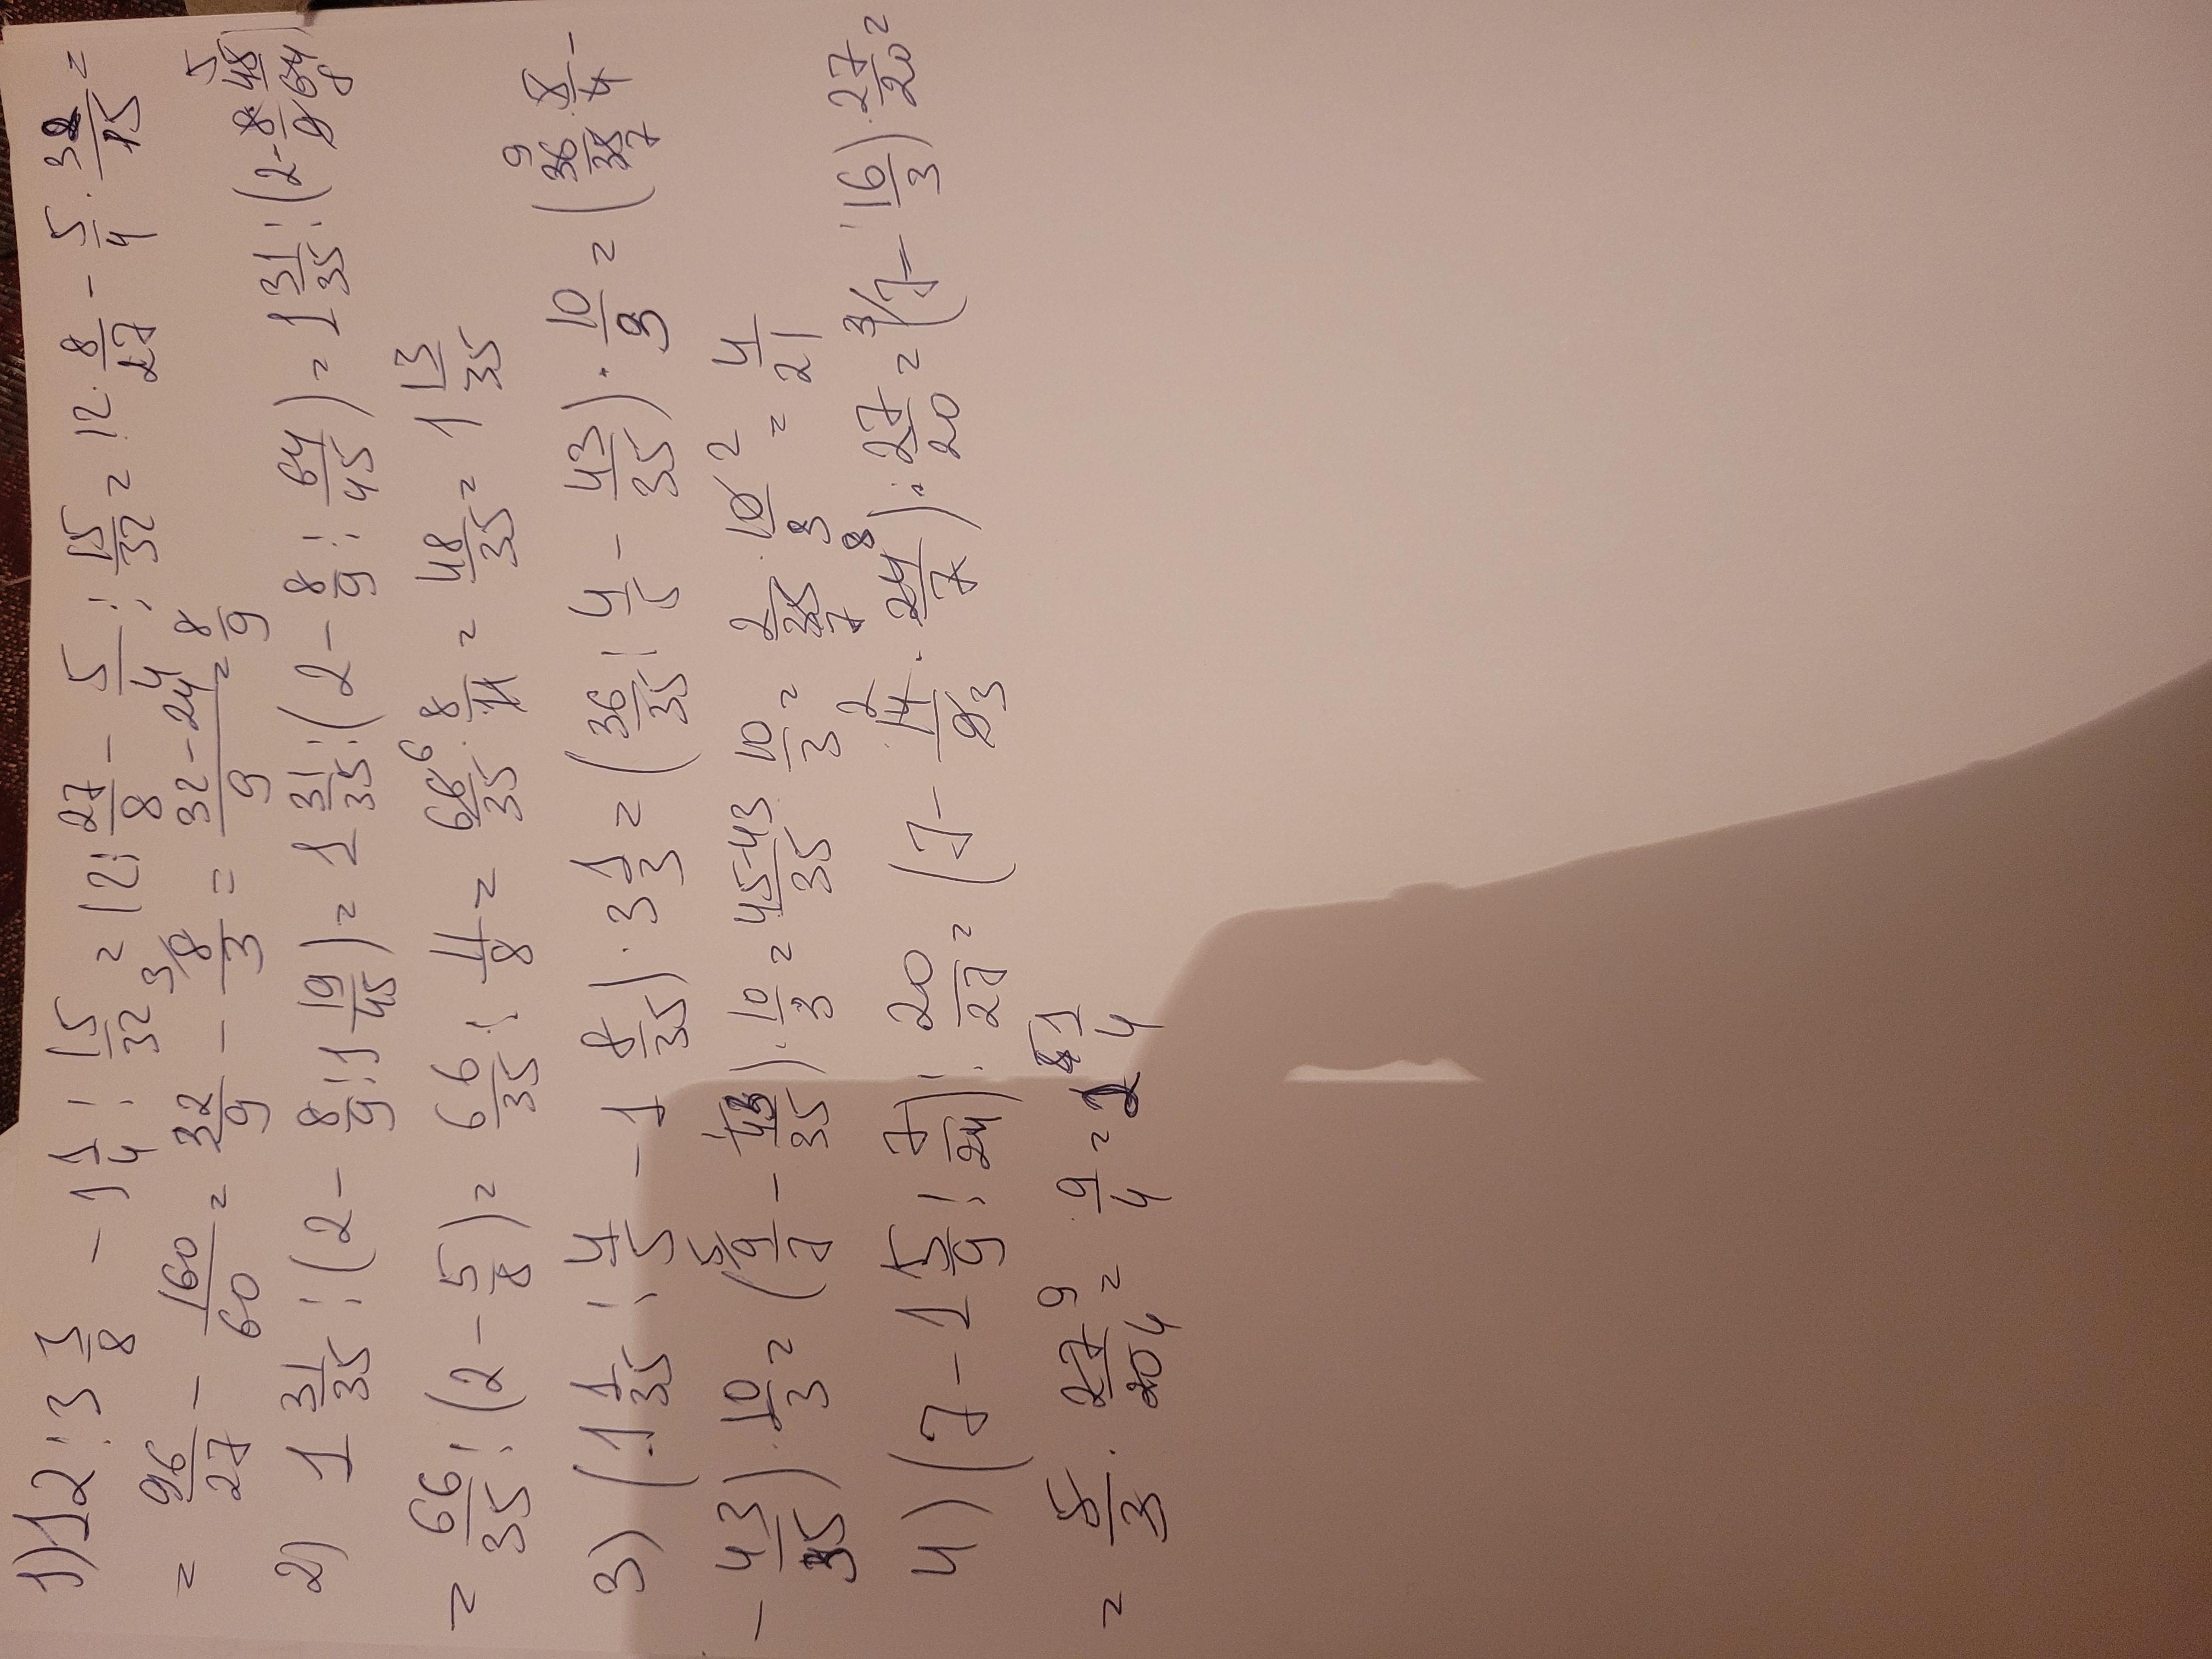 1) 12 : 3 3/8 - 1 1/4 : 15/32 = 12 : 27/8 - 5/4 : 15/32 = 12 · 8/27 - 5/4 · 32/15 =
= 96/27 - 160/60 = 32/9 - 3/ 8/3 = 32-24/9 = 8/9
2) 1 31/35 : (2 - 8/9 : 1 19/45) = 1 31/35 : (2 - 8/9 : 64/45) = 1 31/35 : (2 - 8/9 · 45 5/64 8)
= 66/35 : (2 - 5/8) = 66/35 : 11/8 = 66 6/35 · 8/11 = 48/35 = 1 13/35
3) (1 1/35 : 4/5 - 1 8/35) · 3 1/3 = (36/35 : 4/5 - 43/35) · 10/3 = (36 9/35 7 · 5/4 -
- 43/35) · 10/3 = (5/ 9/7 - 43/35) · 10/3 = 45-43/35 · 10/3 = 2/35 7 · 10 2/3 = 4/21
4) (7 - 1 5/9 : 7/24) : 20/27 = (7 - 14 2/9 3 · 24 8/7) · 27/20 = (3/ 7 - 16/3) · 27/20 =
= 5/3 · 27 9/20 4 = 9/4 = 2 1/4